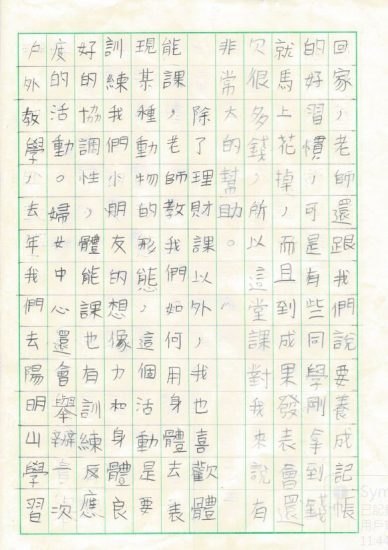 回家，老師還跟我們說要養成記帳
的好習慣，可是有些同學剛拿到錢
就馬上花掉，而且到成果發表會還
欠很多錢，所以這堂課對我來說有
非常大的幫助。
除了理財課以外，我也喜歡體
能課，老師教我們如何用身體去表
現某種動物的形態，這個活動是要
訓練我們小朋友的想像力和身體良
好的協調性，體能課也有訓練反應
疫的活動。婦女中心還會舉辦次
戶外教學，去年我們去陽明山學習
Sym
11:44